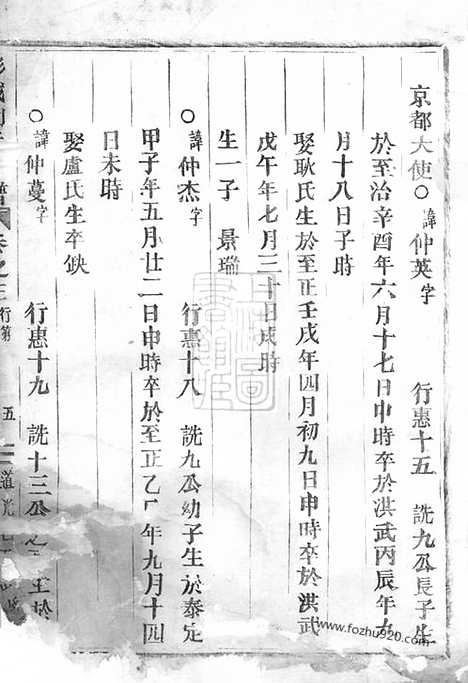 京都大使○諱仲英字 行惠十五 詵九公長子生
於至治辛酉年六月十七日申時卒於洪武丙辰年九
月十八日子時
娶耿氏生於至正壬戌年四月初九日申時卒於洪武
戊午年七月三十日戌時
生一子 景瑞
○諱仲杰字 行惠十八 詵九公幼子生於泰定
甲子年五月廿二日申時卒於至正乙 年九月十四
日未時
娶盧氏生卒缺
○諱仲蔓字 行惠十九 詵十三公 於
譜 卷之三 行第 五 道光
www.fozhu920.com